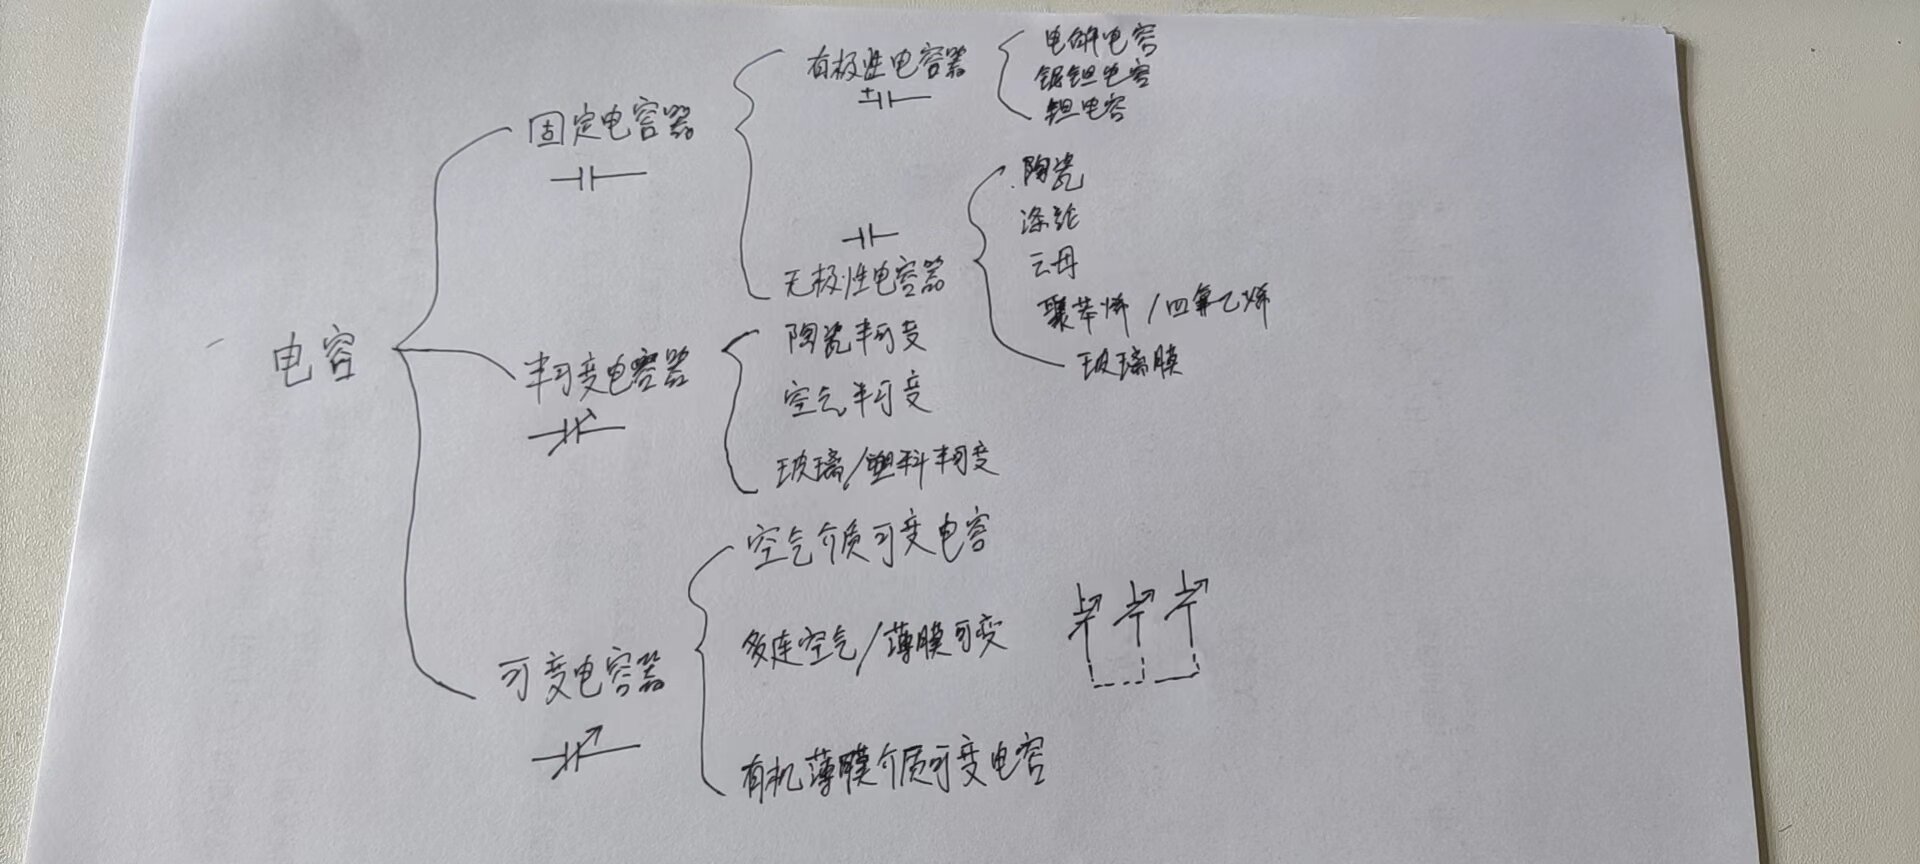 电容
固定电容器
有极性电容器
电解电容
铌钽电容
钽电容
无极性电容器
陶瓷
涤纶
云母
聚苯烯/四氟乙烯
玻璃膜
半可变电容器
陶瓷半可变
空气半可变
玻璃/塑料半可变
可变电容器
空气介质可变电容
多连空气/薄膜可变
有机薄膜介质可变电容